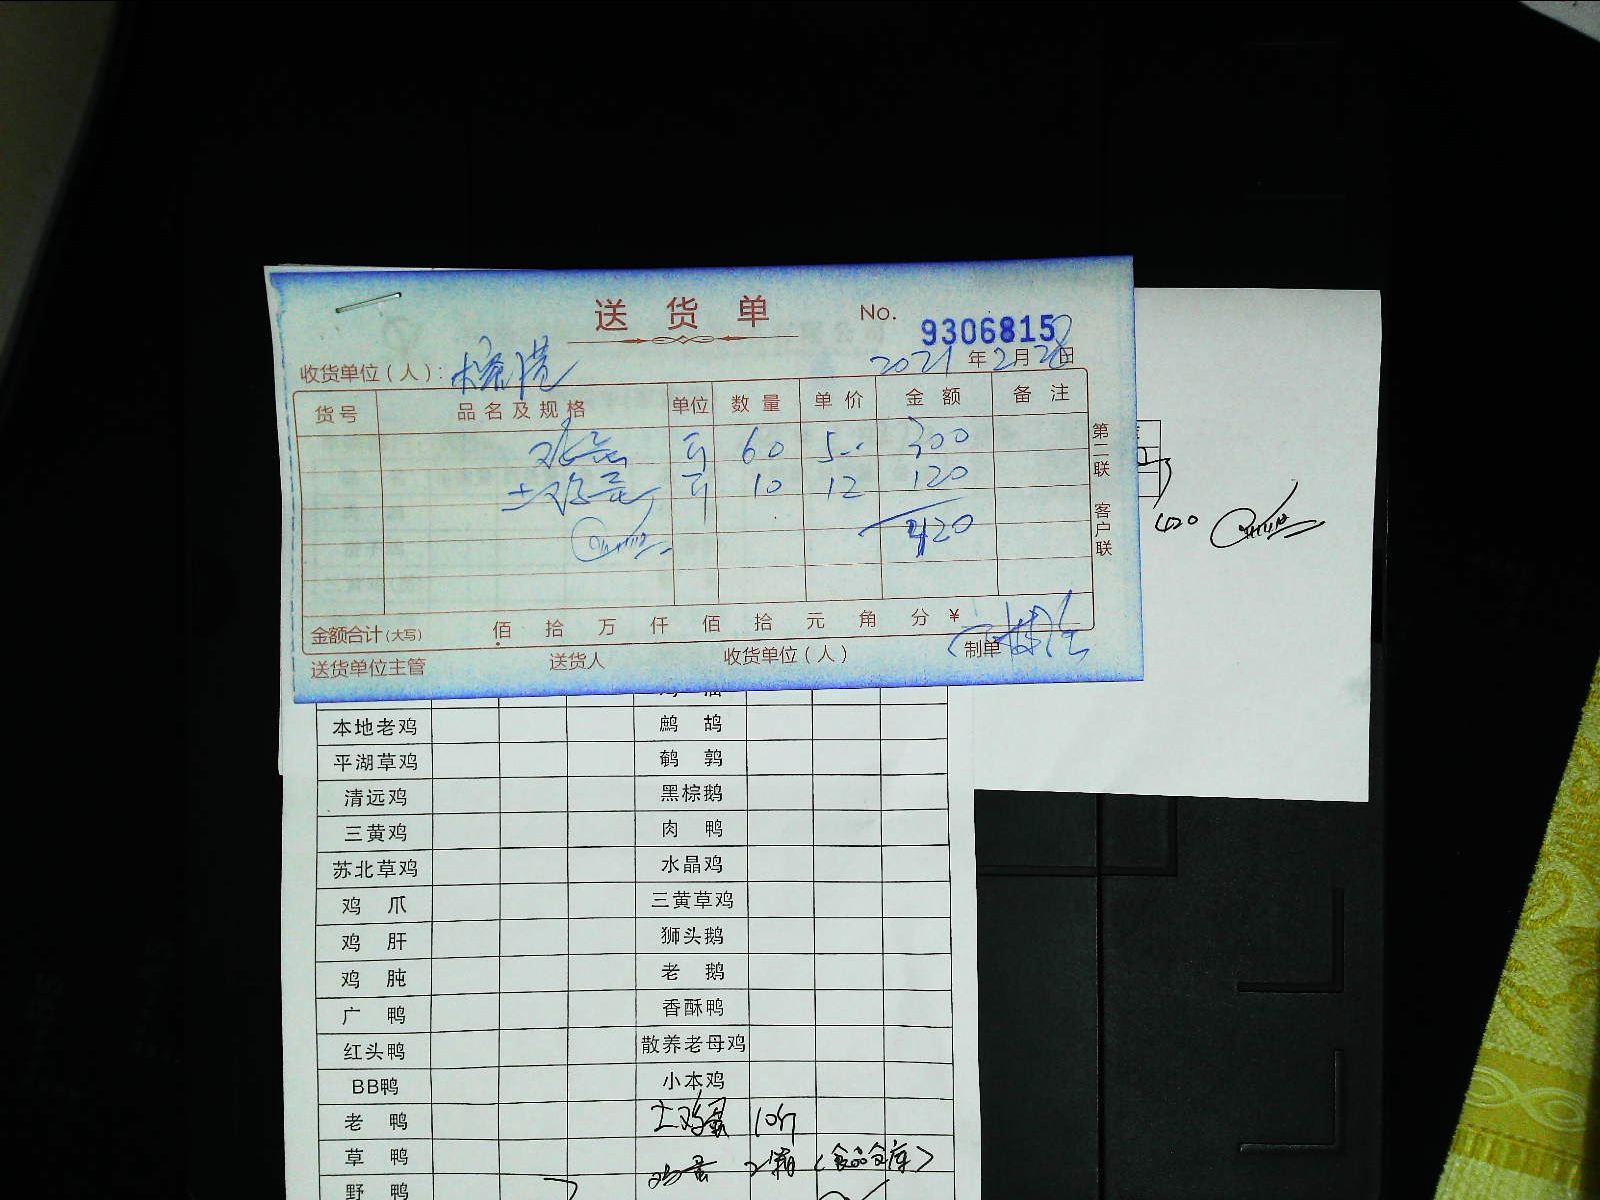 送货单
No. 9306815
收货单位（人）：
2021年2月28日
货号 品名及规格 单位 数量 单价 金额 备注
鸡蛋 斤 60 5 300
土鸡蛋 斤 10 12 120
420
第二联 客户联
420
金额合计(大写) 佰 拾 万 仟 佰 拾 元 角 分 ¥
送货单位主管 送货人 收货单位（人） 制单
本地老鸡 鹧鸪
平湖草鸡 鹌鹑
清远鸡 黑棕鹅
三黄鸡 肉鸭
苏北草鸡 水晶鸡
鸡爪 三黄草鸡
鸡肝 狮头鹅
鸡肫 老鹅
广鸭 香酥鸭
红头鸭 散养老母鸡
BB鸭 小本鸡
老鸭 土鸡蛋 10斤
草鸭 鸡蛋 2箱（食品仓库）
野鸭